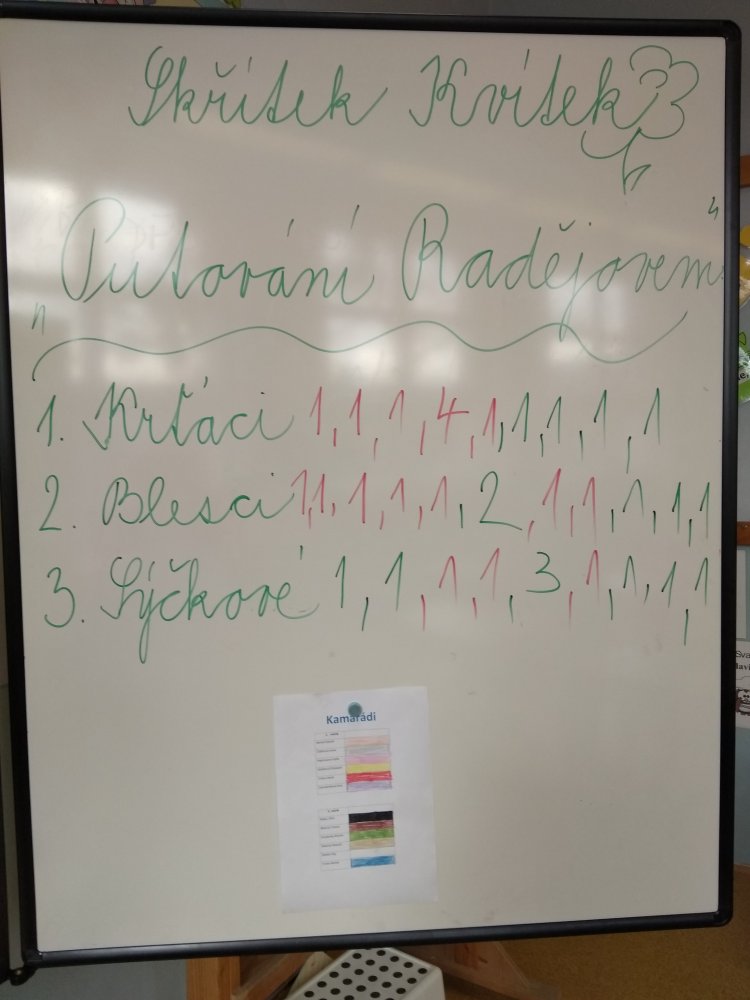 Skřítek Kvítek
"Putování Radějovem"
1. Krťáci 1,1,1,4,1,1,1,1,1
2. Blesci 1,1,1,1,1,2,1,1,1,1,1
3. Sýčkové 1,1,1,1,3,1,1,1,1
Kamarádi